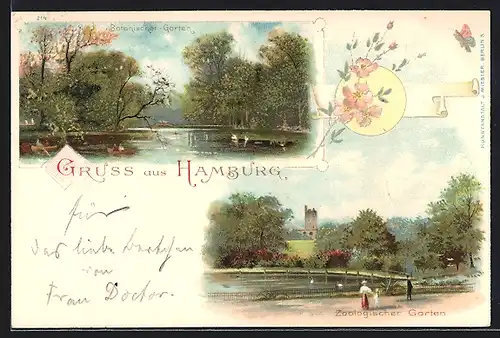 214
Botanischer-Garten.
KUNSTANSTALT J. MIESLER, BERLIN S.
GRUSS AUS HAMBURG.
für
das liebe
von
Frau Doctor.
Zoologischer Garten